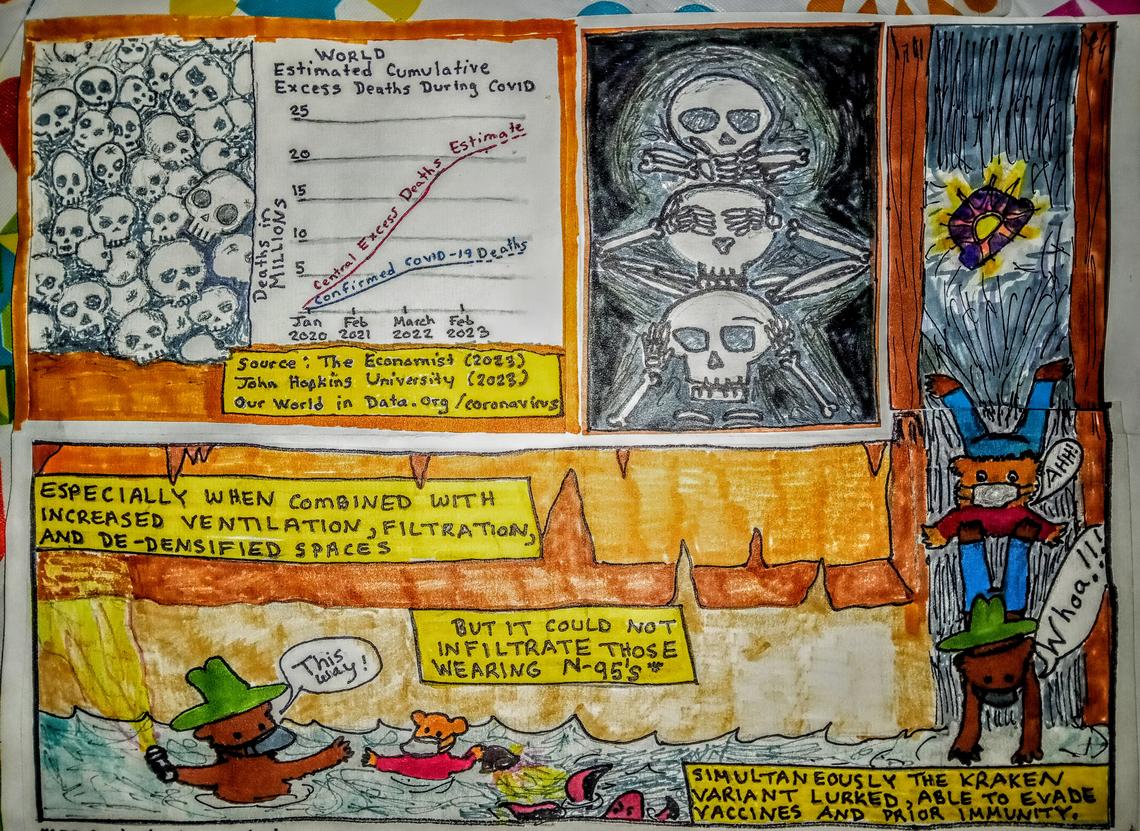 WORLD
Estimated Cumulative
Excess Deaths During COVID
25
20
15
10
5
Deaths in
MILLIONS
Central Excess Deaths Estimate
Confirmed COVID-19 Deaths
Jan Feb March Feb
2020 2021 2022 2023
Source: The Economist (2023)
John Hopkins University (2023)
Our World in Data.org/coronavirus
AHH!
Whoa!!!
ESPECIALLY WHEN COMBINED WITH
INCREASED VENTILATION, FILTRATION,
AND DE-DENSIFIED SPACES
BUT IT COULD NOT
INFILTRATE THOSE
WEARING N-95's*
This
way!
SIMULTANEOUSLY THE KRAKEN
VARIANT LURKED, ABLE TO EVADE
VACCINES AND PRIOR IMMUNITY.